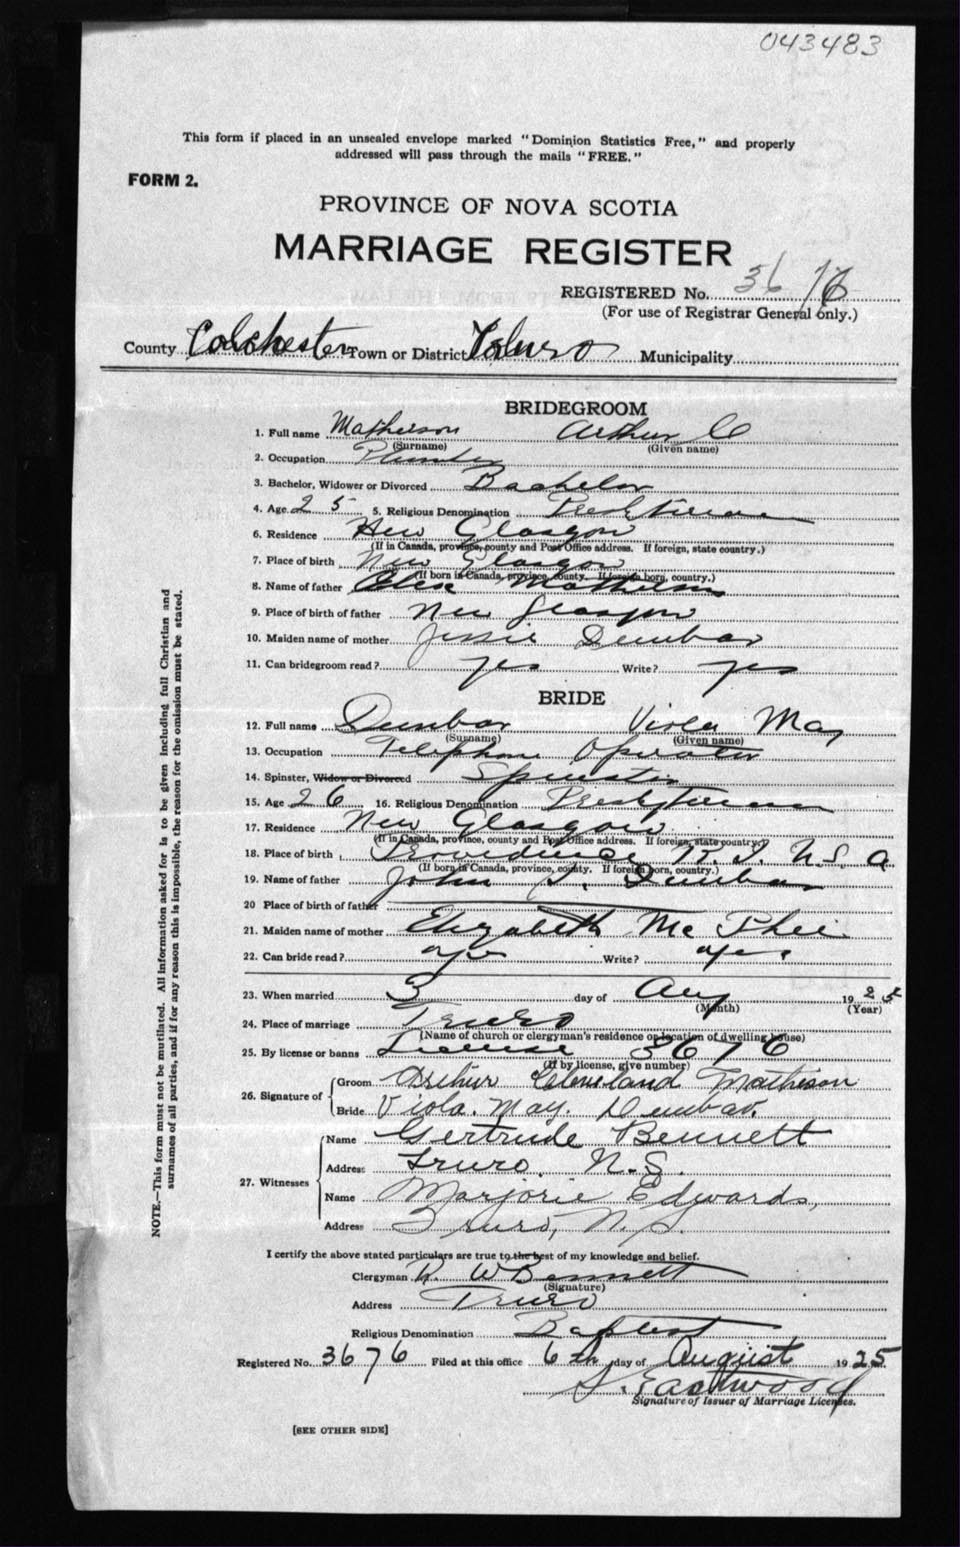 043483
This form if placed in an unsealed envelope marked "Dominion Statistics Free," and properly
addressed will pass through the mails "FREE."
FORM 2.
PROVINCE OF NOVA SCOTIA
MARRIAGE REGISTER
REGISTERED No. 3676
(For use of Registrar General only.)
County Colchester Town or District Truro Municipality
BRIDEGROOM
1. Full name Matheson Arthur C
(Surname) (Given name)
2. Occupation Plumber
3. Bachelor, Widower or Divorced Bachelor
4. Age 25 5. Religious Denomination Presbyterian
6. Residence New Glasgow
(If in Canada, province, county and Post Office address. If foreign, state country.)
7. Place of birth New Glasgow
(If born in Canada, province, county. If foreign born, country.)
8. Name of father Alex Matheson
9. Place of birth of father New Glasgow
10. Maiden name of mother Jessie Dunbar
11. Can bridegroom read? yes Write? yes
BRIDE
12. Full name Dunbar Viola May
(Surname) (Given name)
13. Occupation Telephone Operator
14. Spinster, Widow or Divorced Spinster
15. Age 26 16. Religious Denomination Presbyterian
17. Residence New Glasgow
(If in Canada, province, county and Post Office address. If foreign, state country.)
18. Place of birth Providence R. I. U. S. A
(If born in Canada, province, county. If foreign born, country.)
19. Name of father John Dunbar
20 Place of birth of father
21. Maiden name of mother Elizabeth McPhee
22. Can bride read? yes Write? yes
23. When married 3 day of Aug 1925
(Month) (Year)
24. Place of marriage Truro
(Name of church or clergyman's residence or location of dwelling house)
25. By license or banns License 3676
(If by license, give number)
26. Signature of Groom Arthur Cleveland Matheson
Bride Viola. May. Dunbar.
27. Witnesses
Name Gertrude Bennett
Address Truro, N.S.
Name Marjorie Edwards,
Address Truro, N.S.
I certify the above stated particulars are true to the best of my knowledge and belief.
Clergyman R. W Bennett
(Signature)
Address Truro
Religious Denomination Baptist
Registered No. 3676 Filed at this office 6th day of August 1925
S. Eastwood
Signature of Issuer of Marriage Licenses.
[SEE OTHER SIDE]
NOTE.—This form must not be mutilated. All information asked for is to be given including full Christian and
surnames of all parties, and if for any reason this is impossible, the reason for the omission must be stated.